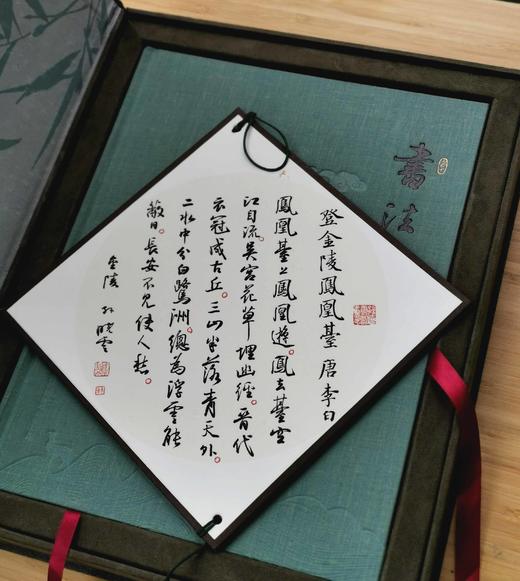 登金陵鳳凰臺 唐李白
鳳凰臺上鳳凰遊。鳳去臺空
江自流。吳宮花草埋幽徑。晉代
衣冠成古丘。三山半落青天外。
二水中分白鷺洲。總為浮雲能
蔽日。長安不見使人愁。
金陵 孙晓雲
書法